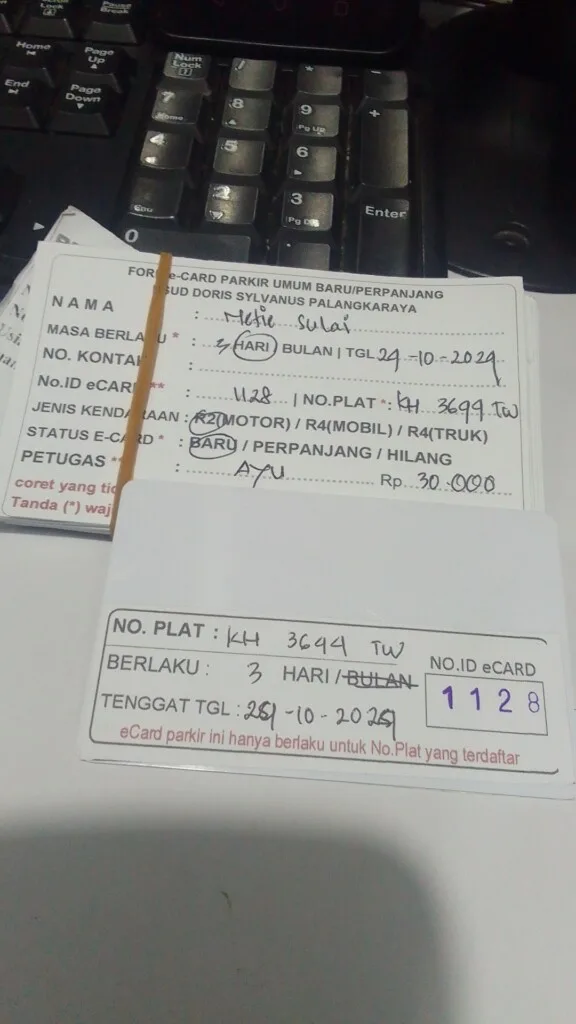 Lock
Pause
Break
Home
Page
Up
End
Page
Down
Num
Lock
/
*
-
7
Home
8
9
Pg Up
+
4
5
6
End
2
3
Pg D
Enter
0
.
FOR e-CARD PARKIR UMUM BARU/PERPANJANG
SUD DORIS SYLVANUS PALANGKARAYA
NAMA : Metie Sulai
MASA BERLA U * : 3 HARI BULAN | TGL 24-10-2024
NO. KONTA :
No.ID eCAR ** : 1128 | NO.PLAT *: KH 3699 TW
JENIS KENDA AAN : R2(MOTOR) / R4(MOBIL) / R4(TRUK)
STATUS E-CA D * : BARU / PERPANJANG / HILANG
PETUGAS ** : AYU Rp 30.000
coret yang ti
Tanda (*) waj
NO. PLAT : KH 3644 TW
BERLAKU : 3 HARI / BULAN
NO.ID eCARD
1128
TENGGAT TGL : -10-202
eCard parkir ini hanya berlaku untuk No.Plat yang terdaftar